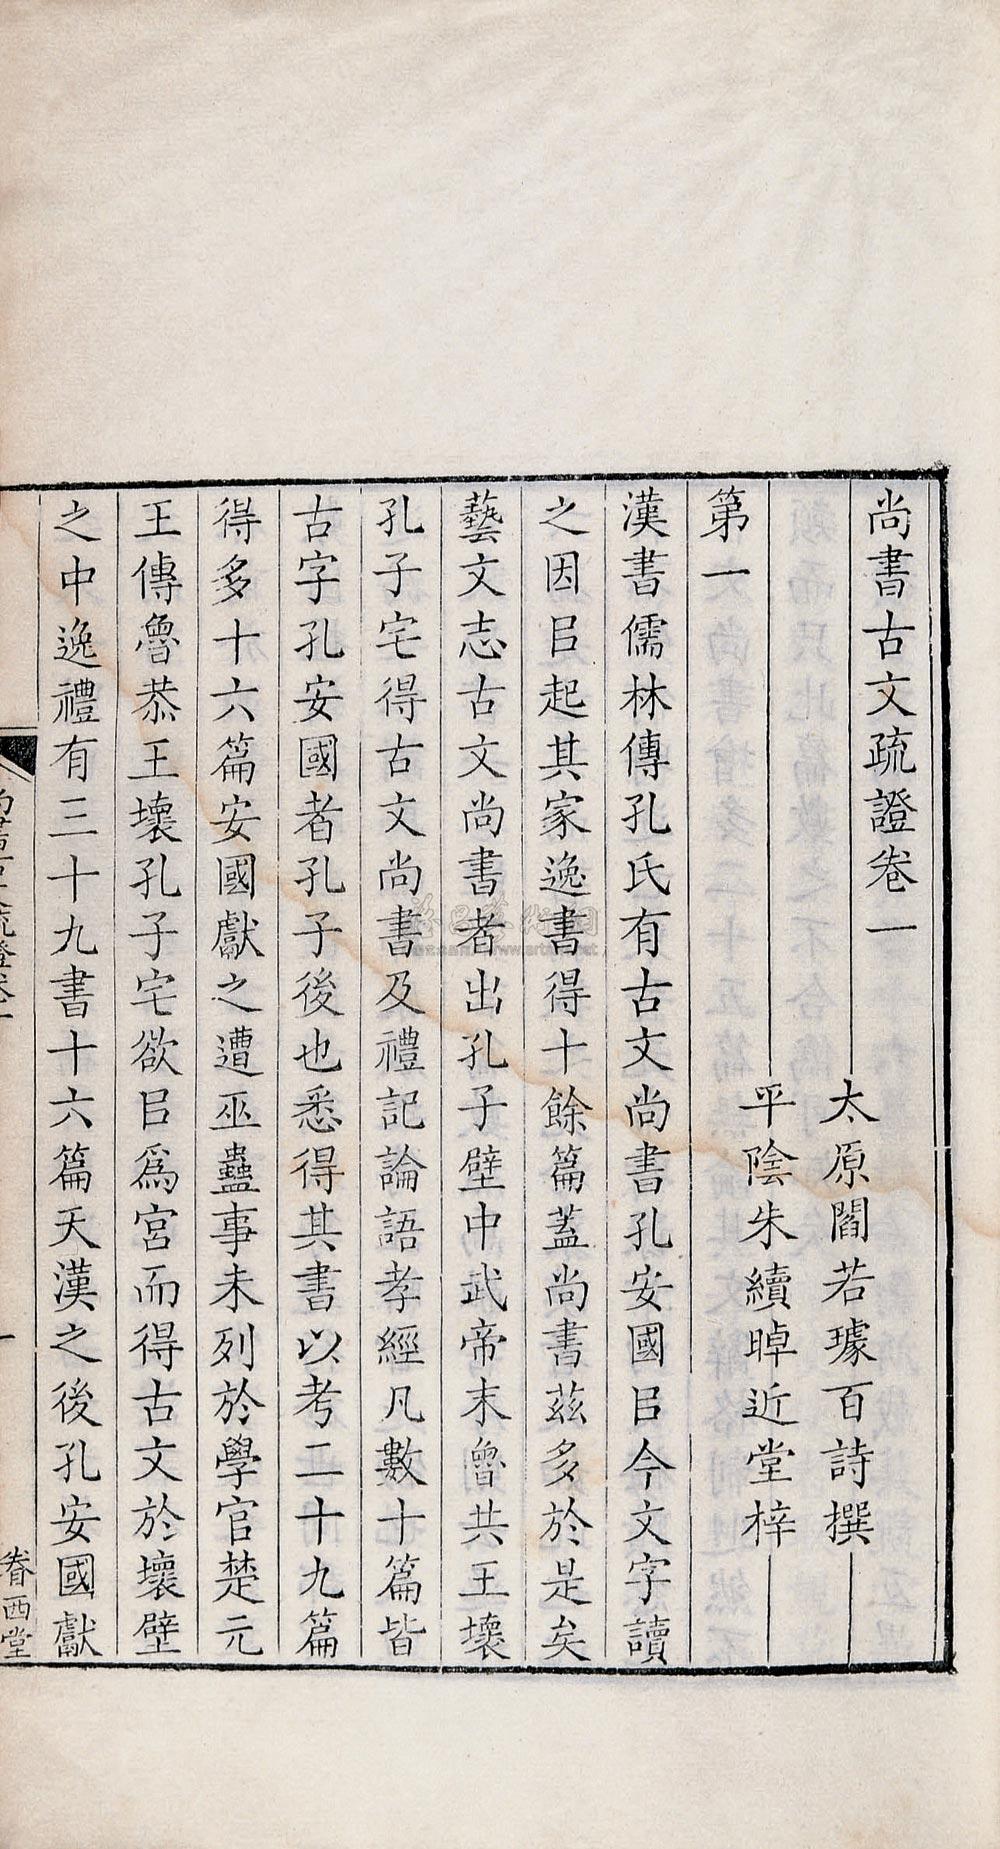 尚書古文疏證卷一
太原閻若璩百詩撰
平陰朱續晫近堂梓
第一
漢書儒林傳孔氏有古文尚書孔安國㠯今文字讀
之因㠯起其家逸書得十餘篇蓋尚書茲多於是矣
藝文志古文尚書者出孔子壁中武帝末魯共王壞
孔子宅得古文尚書及禮記論語孝經凡數十篇皆
古字孔安國者孔子後也悉得其書以考二十九篇
得多十六篇安國獻之遭巫蠱事未列於學官楚元
王傳魯恭王壞孔子宅欲㠯爲宮而得古文於壞壁
之中逸禮有三十九書十六篇天漢之後孔安國獻
尚書古文疏證卷一
一
眷西堂